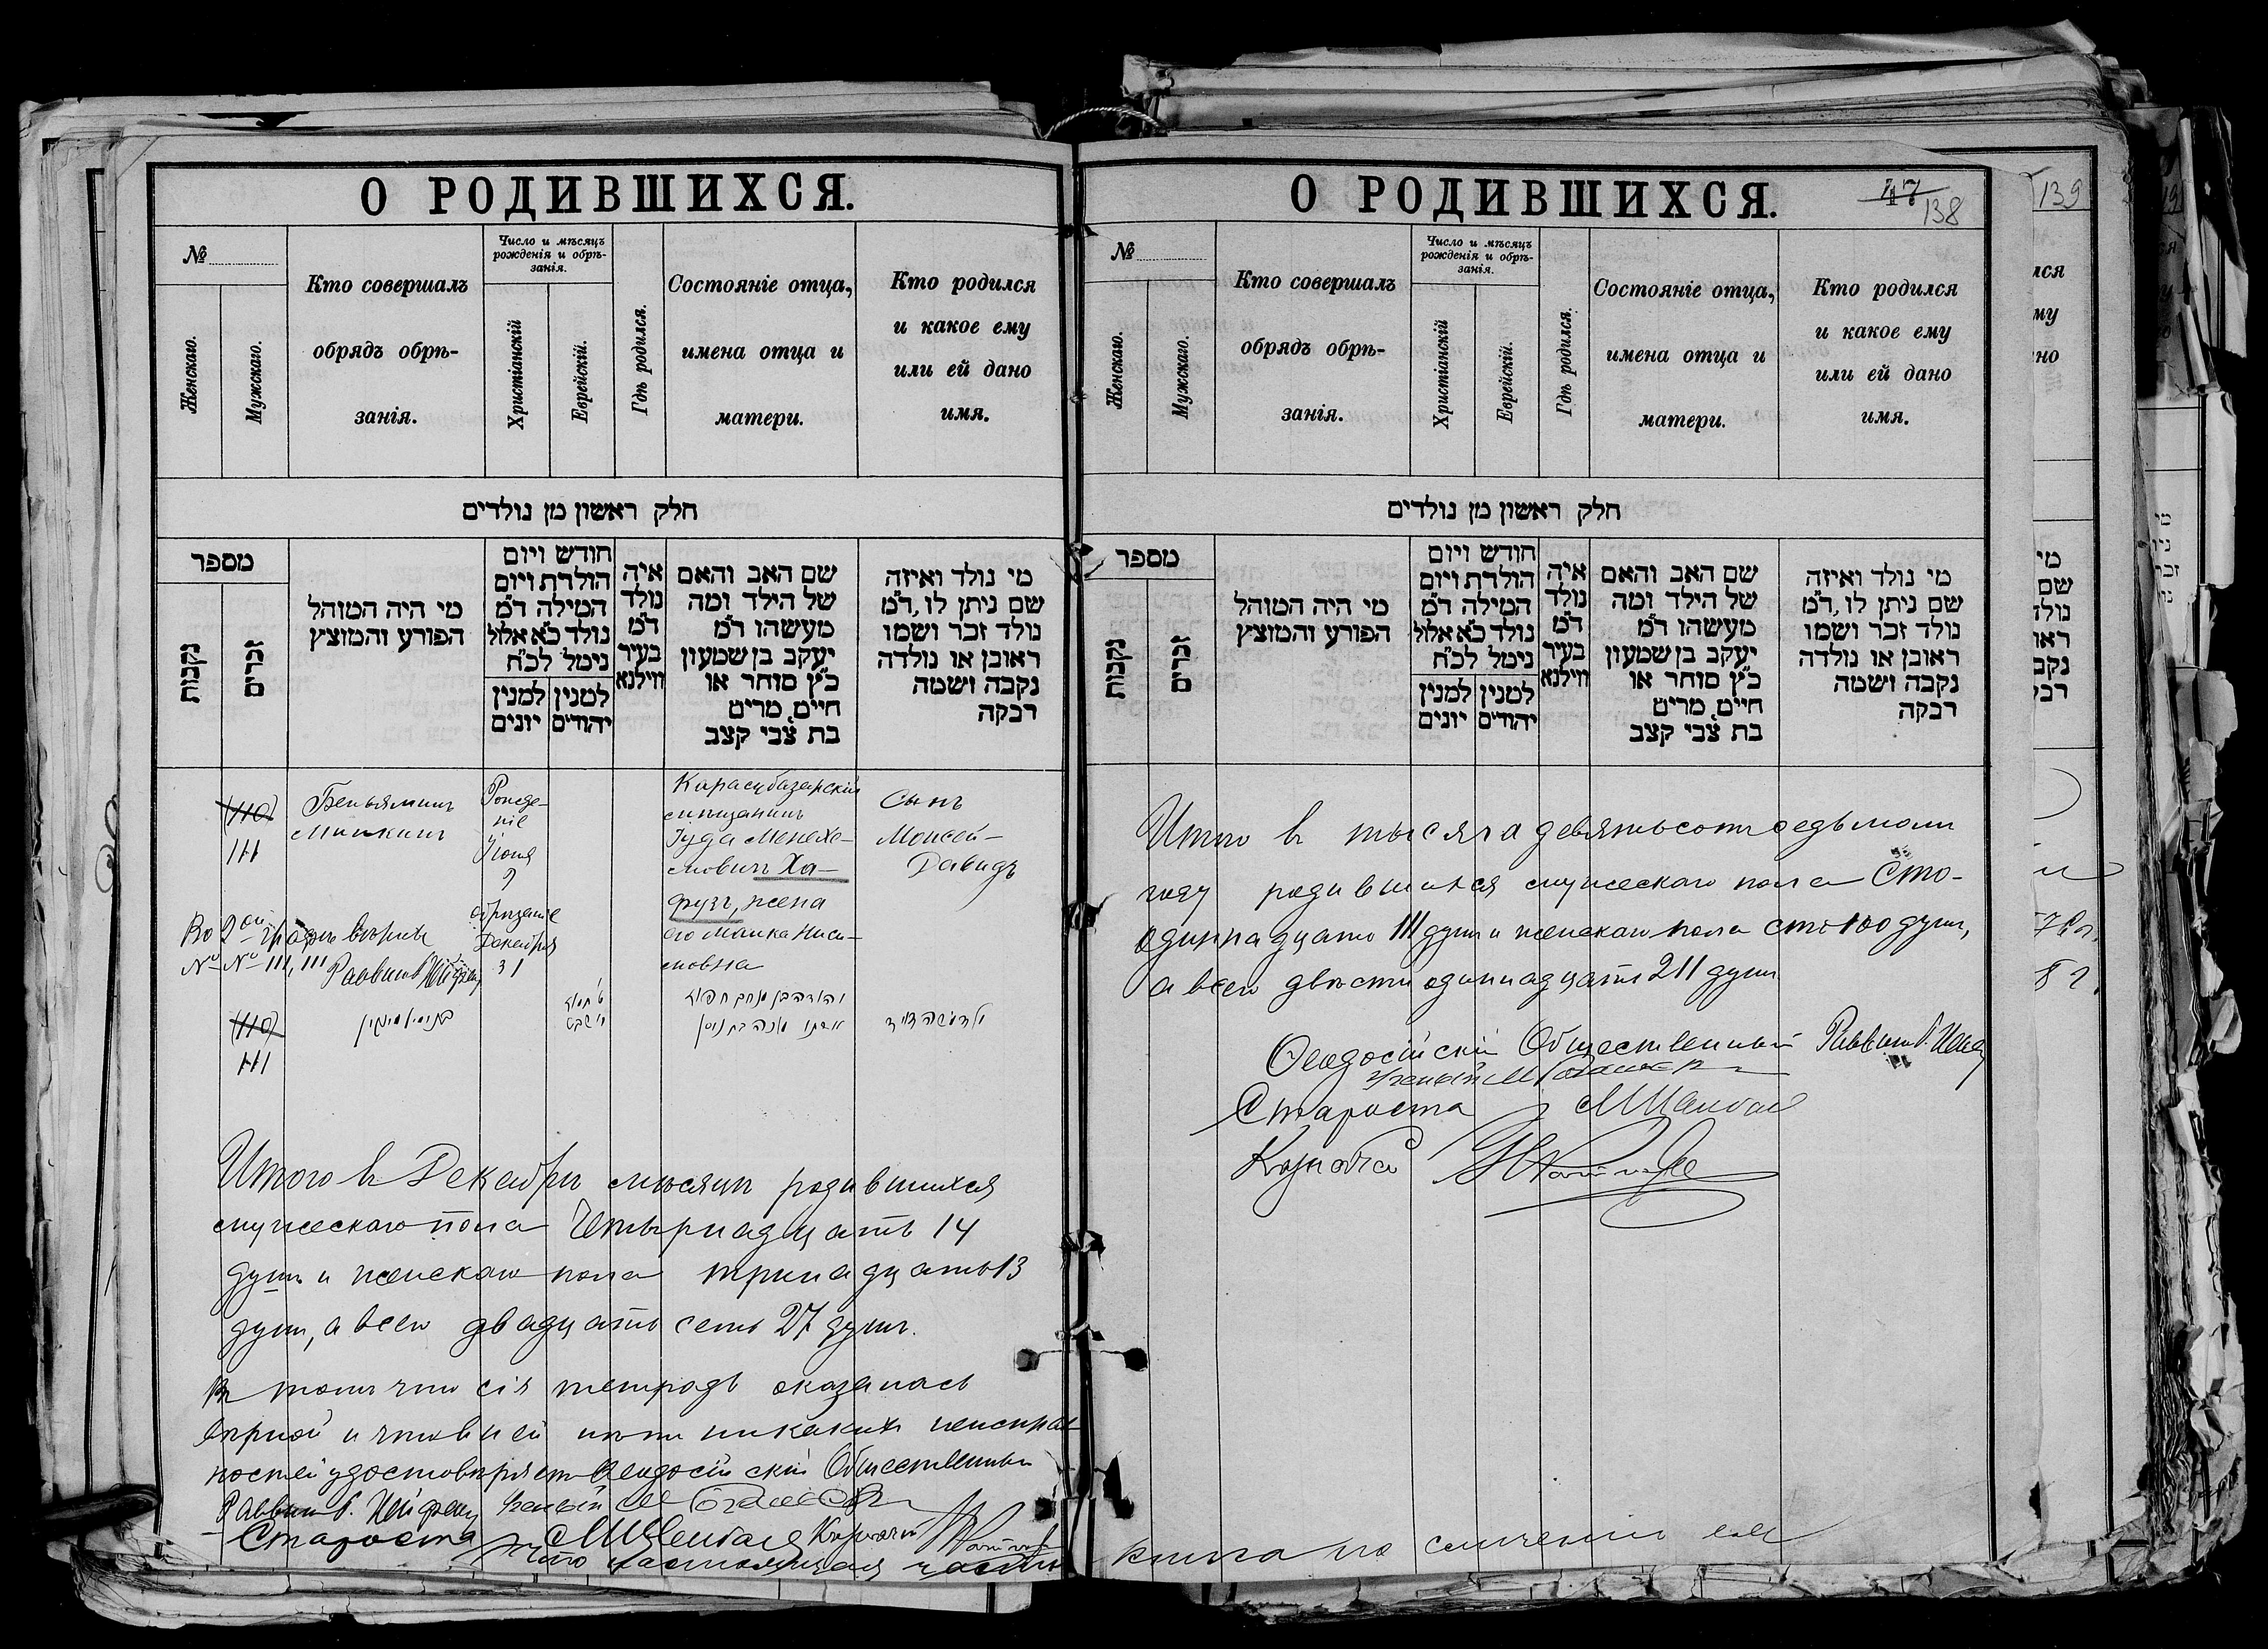 О РОДИВШИХСЯ.
№
Женскаго.
Мужскаго.
Кто совершалъ
обрядъ обрѣ-
занія.
Число и мѣсяцъ
рожденія и обрѣ-
занія.
Христіанскій
Еврейскій.
Гдѣ родился.
Состояніе отца,
имена отца и
матери.
Кто родился
и какое ему
или ей дано
имя.
חלק ראשון מן נולדים
מספר
נקבות
זכרים
מי היה המוהל
הפורע והמוצץ
חודש ויום
הולדת ויום
המילה ד״מ
נולד כ״א אלול
נימל לכ״ח
למנין יונים
למנין יהודים
איה
נולד
ד״מ
בעיר
ווילנא
שם האב והאם
של הילד ומה
מעשהו ד״מ
יעקב בן שמעון
כ״ץ סוחר או
חיים, מרים
בת צבי קצב
מי נולד ואיזה
שם ניתן לו, ד״מ
נולד זכר ושמו
ראובן או נולדה
נקבה ושמה
רבקה
110
111
Беньяминъ
Минкинъ
Рожде-
ніе
9
обрѣзаніе
Декабря
31
Карасубазарскій
мѣщанинъ
Іуда Менахе-
мовичъ Ха-
фузъ, жена
его Малка Ниси-
мовна
Сынъ
Моисей-
Давидъ
Во 2ой графѣ вѣрно
№ № 111, 111 Раввинъ
110
111
בנימין מינקין
Итого въ Декабрѣ мѣсяцѣ родившихся
мужескаго пола Четырнадцать 14
душъ и женскаго пола тринадцать 13
душъ, а всего двадцать семь 27 душъ.
Въ томъ что сія тетрадь оказалась
вѣрной и что въ ней нѣтъ никакихъ неисправ-
ностей удостовѣряетъ Ѳеодосійскій Общественный
Раввинъ
Староста
что настоящая часть
О РОДИВШИХСЯ.
47
138
№
Женскаго.
Мужскаго.
Кто совершалъ
обрядъ обрѣ-
занія.
Число и мѣсяцъ
рожденія и обрѣ-
занія.
Христіанскій
Еврейскій.
Гдѣ родился.
Состояніе отца,
имена отца и
матери.
Кто родился
и какое ему
или ей дано
имя.
חלק ראשון מן נולדים
מספר
נקבות
זכרים
מי היה המוהל
הפורע והמוצץ
חודש ויום
הולדת ויום
המילה ד״מ
נולד כ״א אלול
נימל לכ״ח
למנין יונים
למנין יהודים
איה
נולד
ד״מ
בעיר
ווילנא
שם האב והאם
של הילד ומה
מעשהו ד״מ
יעקב בן שמעון
כ״ץ סוחר או
חיים, מרים
בת צבי קצב
מי נולד ואיזה
שם ניתן לו, ד״מ
נולד זכר ושמו
ראובן או נולדה
נקבה ושמה
רבקה
Итого въ тысяча девятьсотъ седьмомъ
году родившихся мужескаго пола Сто-
одиннадцать 111 душъ и женскаго пола сто 100 душъ,
а всего двѣсти одиннадцать 211 душъ
Ѳеодосійскій Общественный Раввинъ
Староста
книга по сличеніи
139